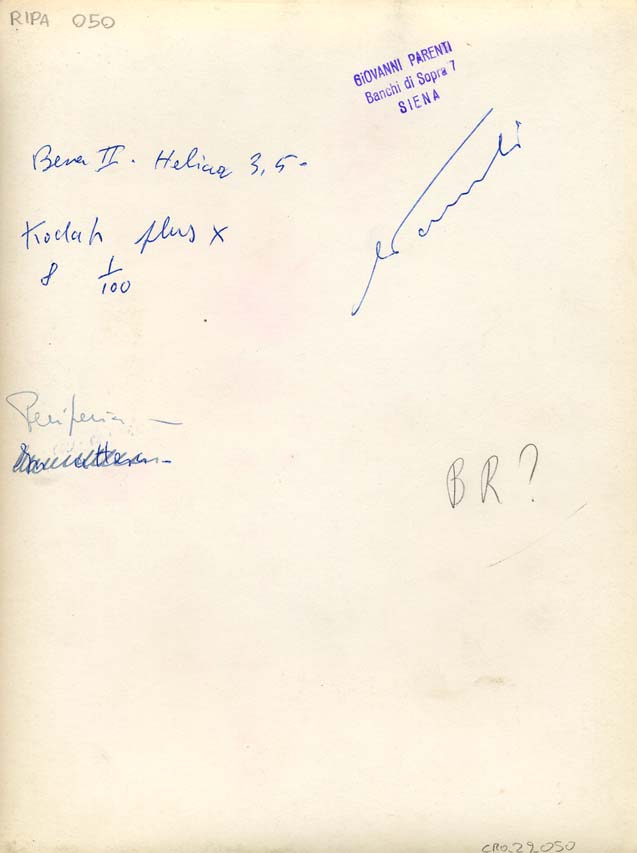 RIPA 050
GIOVANNI PARENTI
Banchi di Sopra 7
SIENA
Bessa II. Heliar 3,5-
Kodak plus x
8 1/100
Periferia —
BR?
CRO.29050